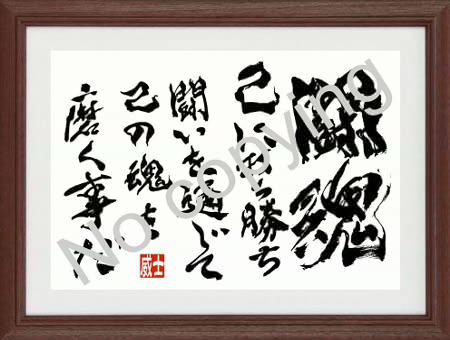 闘魂
己に打ち勝ち
闘いを通じて
己の魂を
磨く事だ
威士
No copying